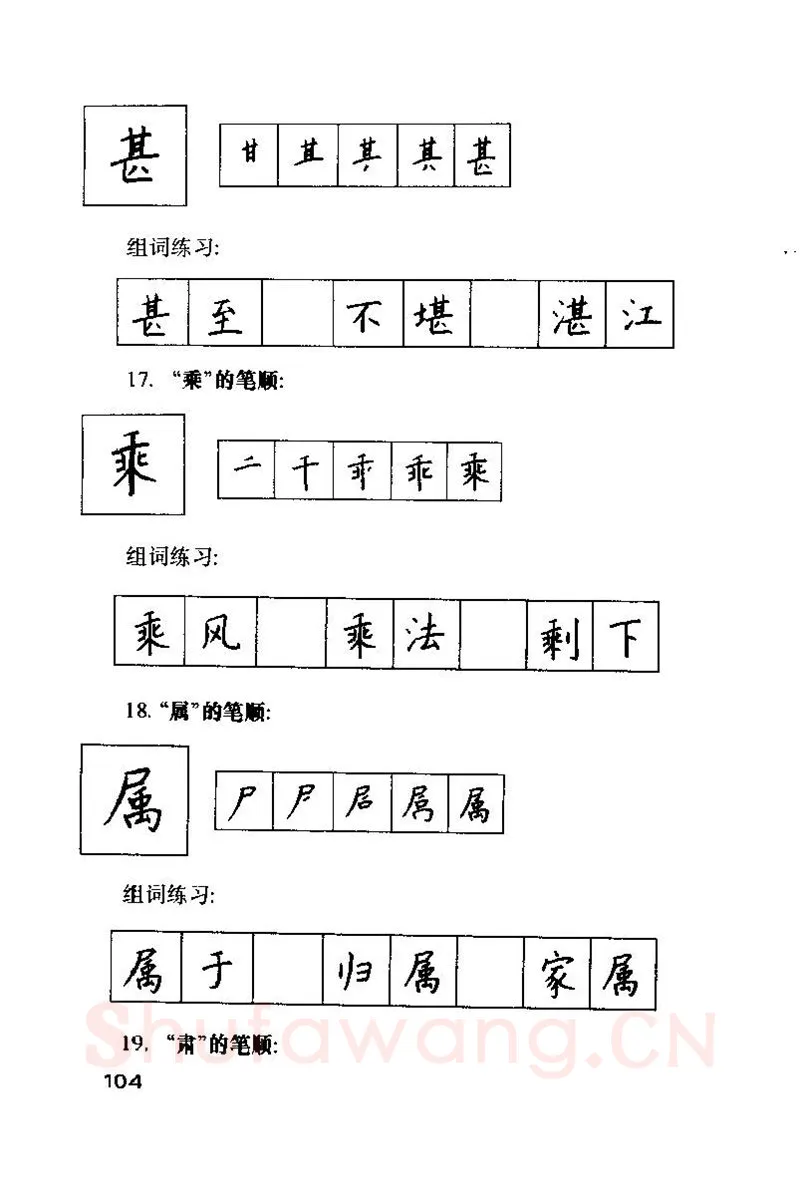 甚 甘 其 甚
组词练习:
甚至 不堪 湛江
17. “乘”的笔顺:
乘 二 千 乖 乘
组词练习:
乘风 乘法 剩下
18. “属”的笔顺:
属 尸 属
组词练习:
属于 归属 家属
19. “肃”的笔顺:
104
Shufawang.CN